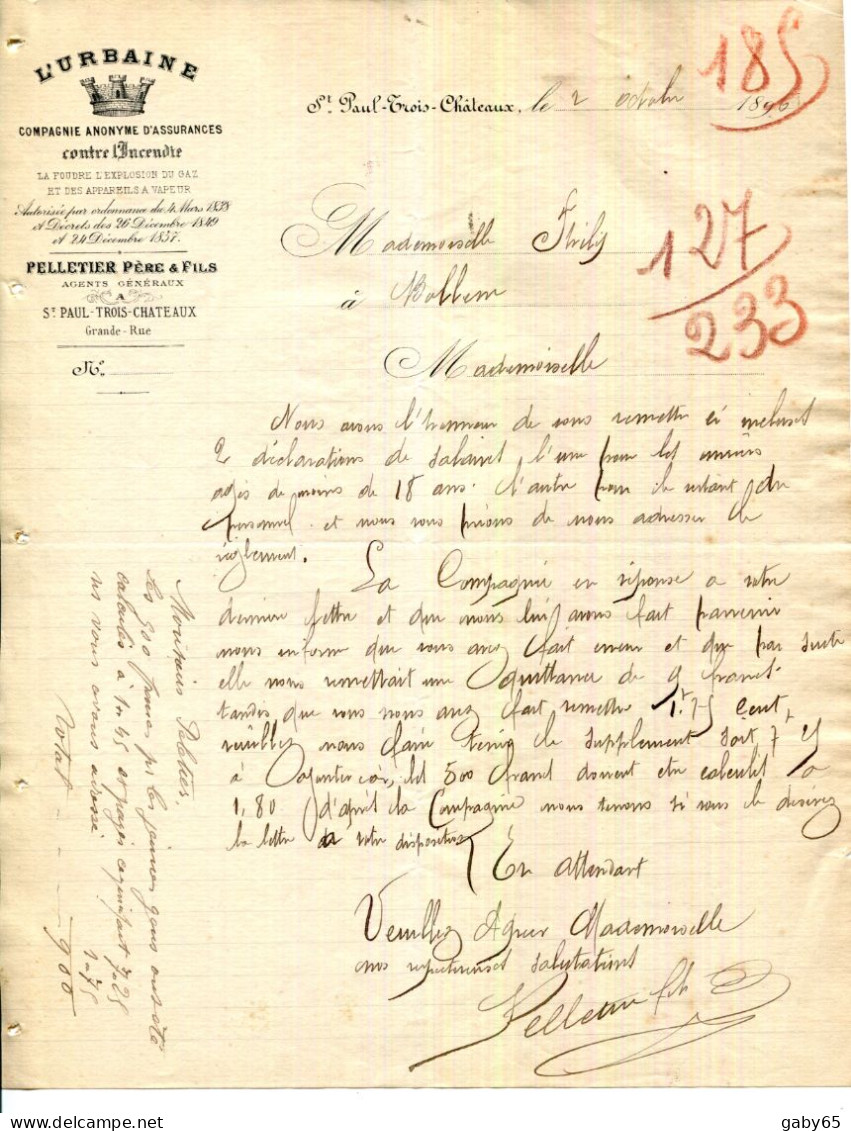 L'URBAINE
COMPAGNIE ANONYME D'ASSURANCES
contre l'Incendie
LA FOUDRE L'EXPLOSION DU GAZ
ET DES APPAREILS A VAPEUR
Autorisée par ordonnance du 4 Mars 1838
et Décrets des 26 Décembre 1849
et 24 Décembre 1857.
PELLETIER PÈRE & FILS
AGENTS GÉNÉRAUX
A
St PAUL-TROIS-CHATEAUX
Grande-Rue
No
185
St. Paul-Trois-Châteaux, le 2 octobre 1896
127
233
Mademoiselle
à Bollène
Mademoiselle
Nous avons l'honneur de vous remettre ci incluses
2 déclarations de salaires l'une pour les ouvriers
agés de moins de 18 ans. l'autre pour le restant du
personnel. et nous vous prions de nous adresser le
règlement. La Compagnie en réponse a votre
dernière lettre et que nous lui avons fait parvenir
nous informe que vous avez fait erreur et que par suite
elle nous remettait une Quittance de 9 francs
tandis que vous nous avez fait remettre 1f.75 cent,
veuillez nous faire tenir le supplément soit 7 25
à, les 500 franc doivent etre calculés a
1,80 d'après la Compagnie nous tenons si vous le désirez
la lettre a votre disposition
En attendant
Veuillez Agréer Mademoiselle
nos respectueuses salutations
Pelletier fils
Monsieur Pelletier.
Les 500 francs pr les jeunes gens ont été
calculés à 1n45 et payés ce qui fait 7n25
ns vous avons adressé 1n75
Total - - - 900
gaby65